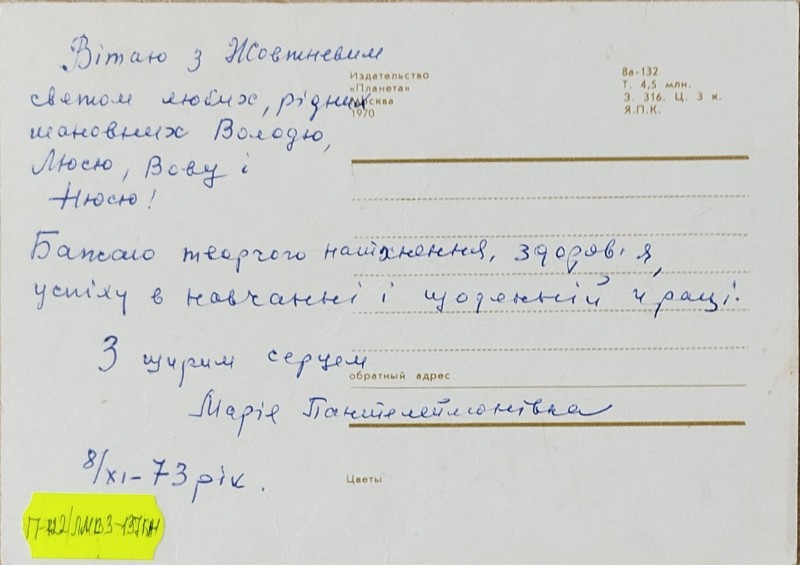 Вітаю з Жовтневим
святом любих, рідних
шановних Володю,
Люсю, Вову і
Нюсю!
Бажаю творчого натхнення, здоров'я,
успіху в навчанні і щоденній праці.
З щирим серцем
Марія Пантелеймонівна
8/XI-73 рік.
Издательство
«Планета»
Москва
1970
8а-132
Т. 4,5 млн.
З. 316. Ц. 3 к.
Я.П.К.
обратный адрес
Цветы